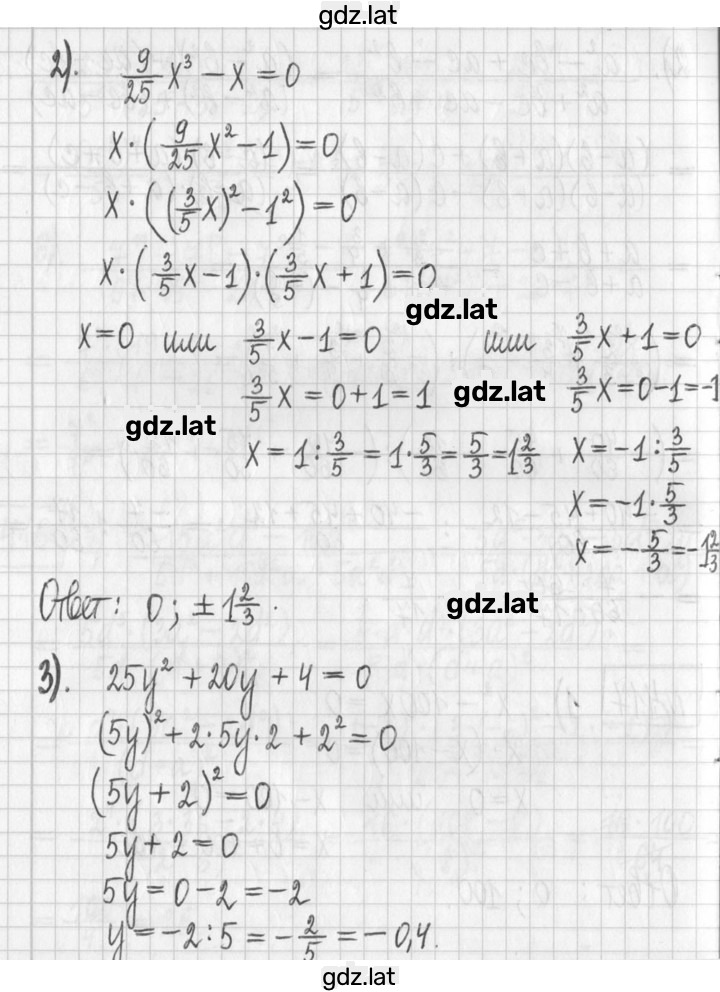 gdz.lat
2). 9/25 x³ − x = 0
x · (9/25 x² − 1) = 0
x · ((3/5 x)² − 1²) = 0
x · (3/5 x − 1) · (3/5 x + 1) = 0
gdz.lat
x = 0 или 3/5 x − 1 = 0 или 3/5 x + 1 = 0
3/5 x = 0 + 1 = 1 gdz.lat 3/5 x = 0 − 1 = −1
gdz.lat
x = 1 : 3/5 = 1 · 5/3 = 5/3 = 1 2/3 x = −1 : 3/5
x = −1 · 5/3
x = − 5/3 = −1 2/3
Ответ: 0; ± 1 2/3. gdz.lat
3). 25y² + 20y + 4 = 0
(5y)² + 2 · 5y · 2 + 2² = 0
(5y + 2)² = 0
5y + 2 = 0
5y = 0 − 2 = −2
y = −2 : 5 = − 2/5 = − 0,4.
gdz.lat